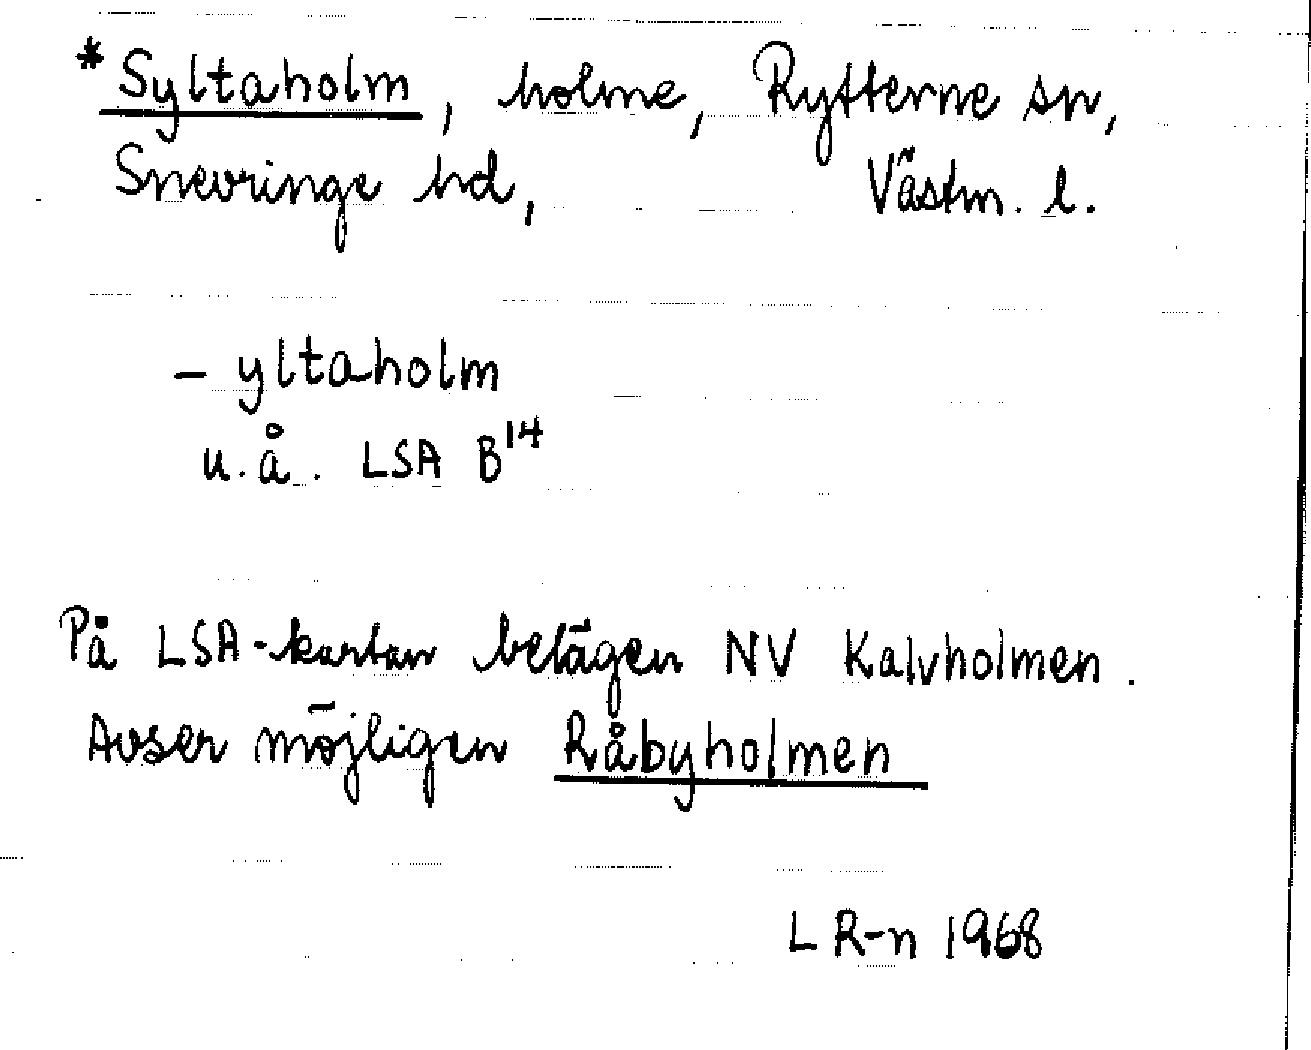 *Syltaholm, holme, Rytterne sn,
Snevringe hd, Västm. l.
– yltaholm
u.å. LSA B¹⁴
På LSA-kartan belägen NV Kalvholmen.
Avser möjligen Råbyholmen
L R-n 1968